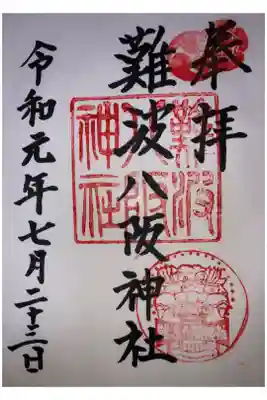 奉拝
難波八阪神社
難波
八阪
神社
令和元年七月二十三日